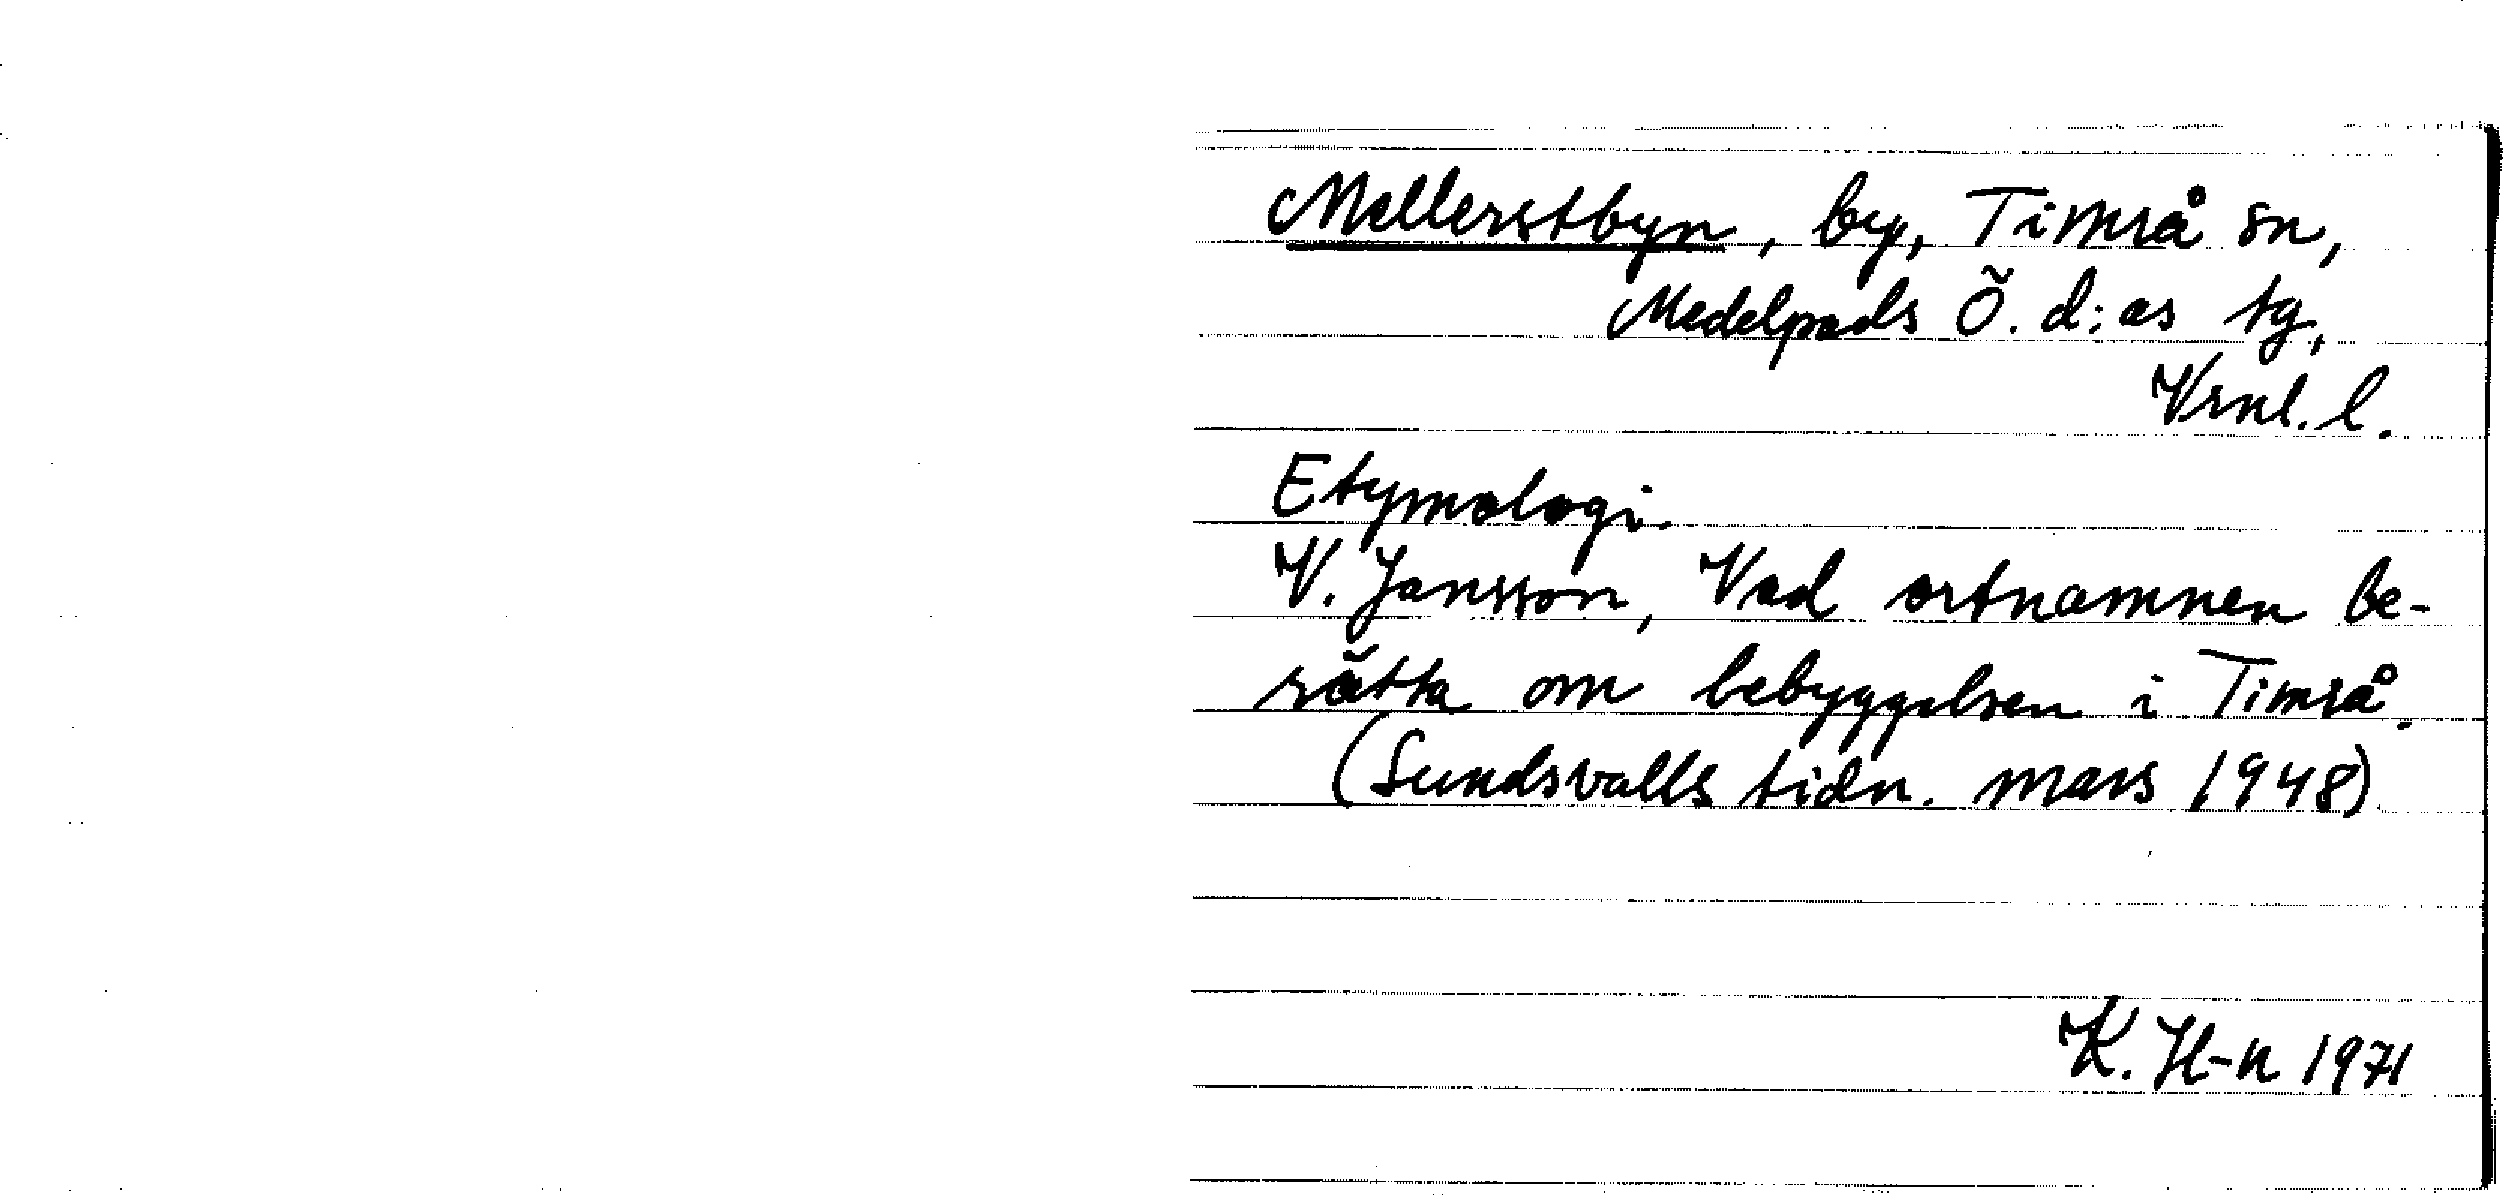 Mellerstbyn, by, Timrå sn,
Medelpads Ö. d:as tg,
Vrnl. l.
Etymologi.
V. Jansson, Vad ortnamnen be-
rätta om bebyggelsen i Timrå.
(Sundsvalls tidn. mars 1948)
K. H-n 1971